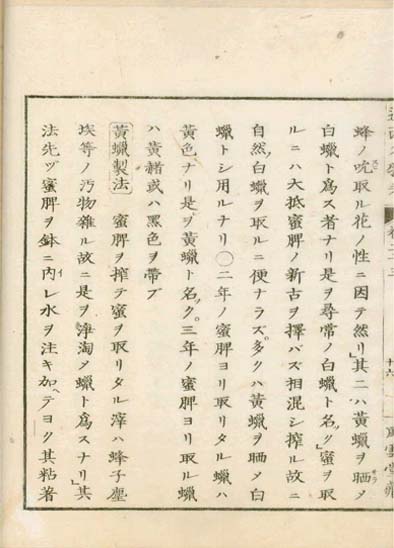 蜂ノ吮取ル花ノ性ニ因テ然リ」其二ハ黃蠟ヲ晒メ
白蠟ト爲ス者ナリ是ヲ尋常ノ白蠟ト名ク」蜜ヲ取
ルニハ大抵蜜脾ノ新古ヲ擇バズ相混シ搾ル故ニ
自然ノ白蠟ヲ取ルニ便ナラズ多クハ黃蠟ヲ晒メ白
蠟トシ用ルナリ〇二年ノ蜜脾ヨリ取リタル蠟ハ
黃色ナリ是ヲ黃蠟ト名ク。三年ノ蜜脾ヨリ取ル蠟
ハ黃赭或ハ黑色ヲ帶ブ
黃蠟製法 蜜脾ヲ搾テ蜜ヲ取リタル滓ハ蜂子塵
埃等ノ汚物雜ル故ニ是ヲ淨淘メ蠟ト爲スナリ」其
法先ヅ蜜脾ヲ鉢ニ內レ水ヲ注キ加ヘテヨク其粘著